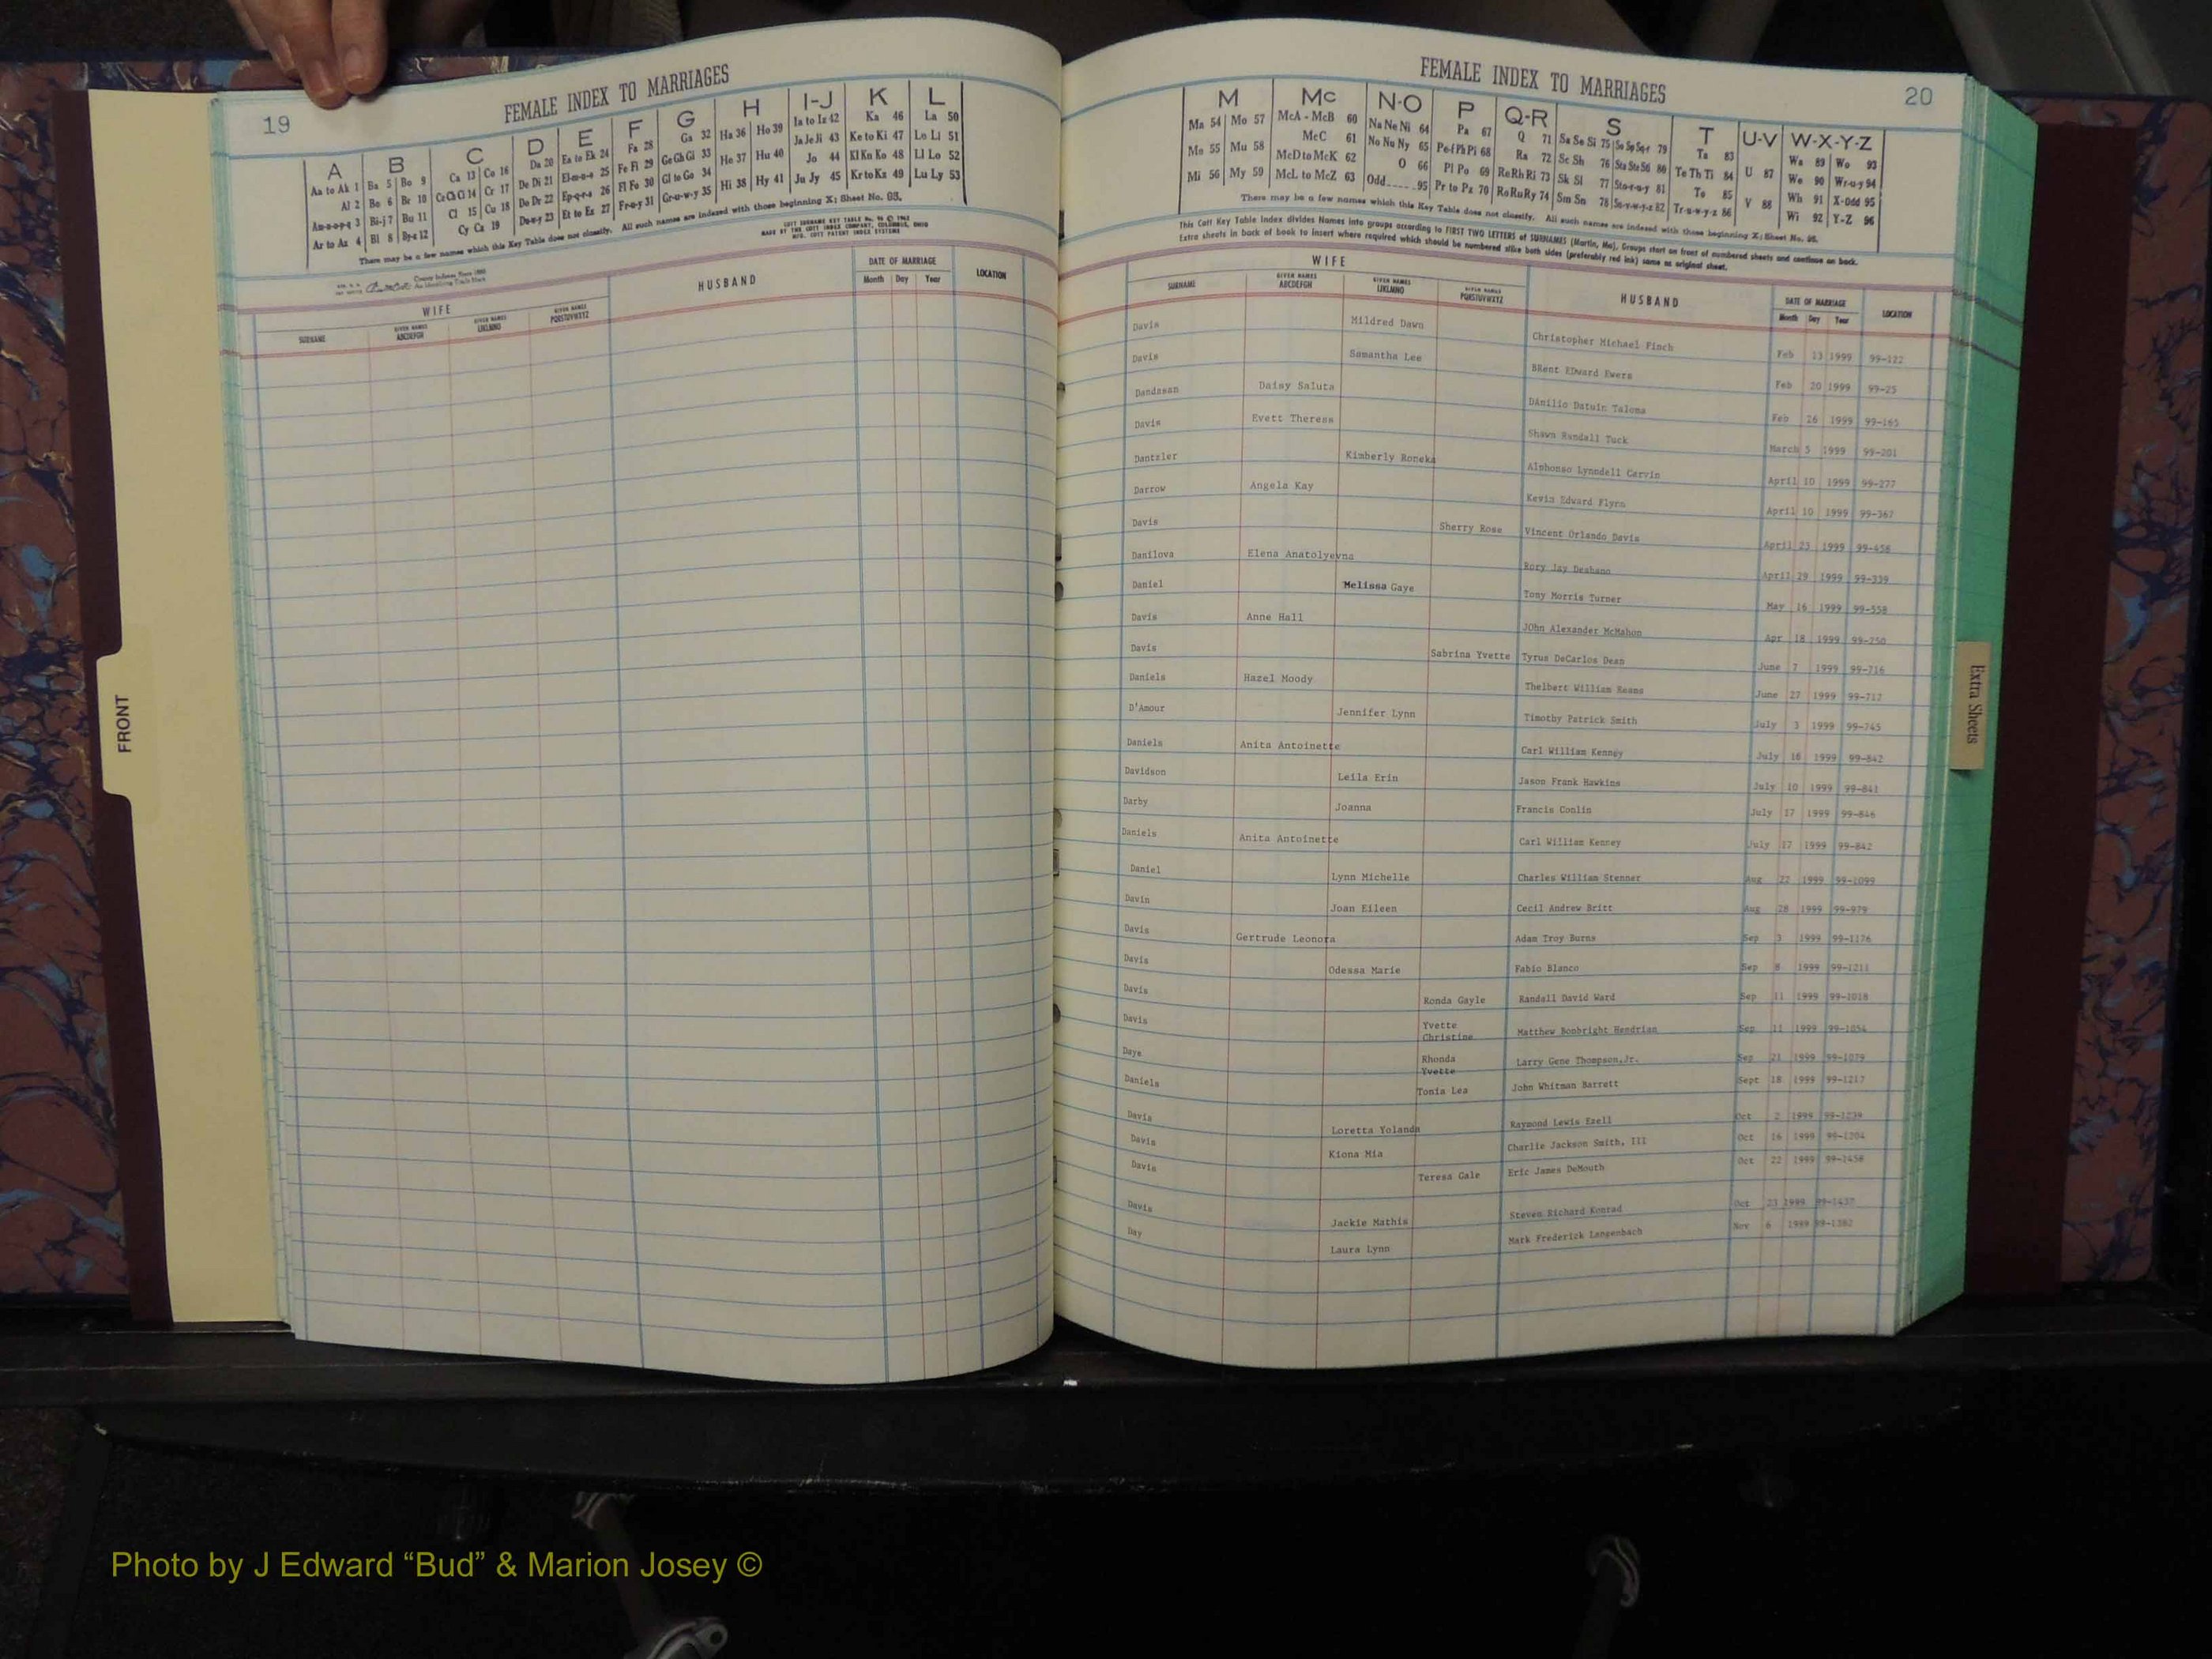 19
FEMALE INDEX TO MARRIAGES
A B C D E F G H I-J K L
Aa to Ak 1 Ba 5 Bo 9 Ca 13 Co 16 Da 20 Ea to Ek 24 Fa 28 Ga 32 Ha 36 Ho 39 Ia to Iz 42 Ka 46 La 50
Al 2 Be 6 Br 10 Ce Ch Ci 14 Cr 17 De Di 21 El-m-n-o 25 Fe Fi 29 Ge Gh Gi 33 He 37 Hu 40 Ja Je Ji 43 Ke to Ki 47 Le Li 51
Am-n-o-p-q 3 Bi-j 7 Bu 11 Cl 15 Cu 18 Do Dr 22 Ep-q-r-s 26 Fl Fo 30 Gl to Go 34 Hi 38 Hy 41 Jo 44 Kl Kn Ko 48 Ll Lo 52
Ar to Az 4 Bl 8 By-z 12 Cy Cz 19 Du-w-y 23 Et to Ez 27 Fr-u-y 31 Gr-u-w-y 35 Ju Jy 45 Kr to Kz 49 Lu Ly 53
There may be a few names which this Key Table does not classify. All such names are indexed with those beginning X; Sheet No. 95.
WIFE HUSBAND DATE OF MARRIAGE LOCATION
SURNAME GIVEN NAMES ABCDEFGH GIVEN NAMES IJKLMNO GIVEN NAMES PQRSTUVWXYZ Month Day Year
FRONT
FEMALE INDEX TO MARRIAGES
20
M Mc N-O P Q-R S T U-V W-X-Y-Z
Ma 54 Mo 57 McA - McB 60 Na Ne Ni 64 Pa 67 Q 71 Sa Se Si 75 So Sp Sq-r 79 Ta 83 U 87 Wa 89 Wo 93
Me 55 Mu 58 McC 61 No Nu Ny 65 Pe-f Ph Pi 68 Ra 72 Sc Sh 76 Sta Ste Sti 80 Te Th Ti 84 V 88 We 90 Wr-u-y 94
Mi 56 My 59 McD to McK 62 O 66 Pl Po 69 Re Rh Ri 73 Sk Sl 77 Sto-r-u-y 81 To 85 Wh 91 X-Odd 95
McL to McZ 63 Odd 95 Pr to Pz 70 Ro Ru Ry 74 Sm Sn 78 Su-v-w-y-z 82 Tr-u-w-y-z 86 Wi 92 Y-Z 96
There may be a few names which this Key Table does not classify. All such names are indexed with those beginning X; Sheet No. 95.
This Cott Key Table Index divides Names into groups according to FIRST TWO LETTERS of SURNAMES (Martin, Ma). Groups start on front of numbered sheets and continue on back.
Extra sheets in back of book to insert where required which should be numbered alike both sides (preferably red ink) same as original sheet.
WIFE HUSBAND DATE OF MARRIAGE LOCATION
SURNAME GIVEN NAMES ABCDEFGH GIVEN NAMES IJKLMNO GIVEN NAMES PQRSTUVWXYZ Month Day Year
Davis Mildred Dawn Christopher Michael Finch Feb 13 1999 99-122
Davis Samantha Lee BRent EDward Ewers Feb 20 1999 99-25
Dandasan Daisy Saluta DAnilio Datuin Talona Feb 26 1999 99-165
Davis Evett Theresa Shawn Randall Tuck March 5 1999 99-201
Dantzler Kimberly Roneka Alphonso Lynndell Garvin April 10 1999 99-277
Darrow Angela Kay Kevin Edward Flynn April 10 1999 99-367
Davis Sherry Rose Vincent Orlando Davis April 23 1999 99-458
Danilova Elena Anatolyevna Rory Jay Deshano April 29 1999 99-339
Daniel Melissa Gaye Tony Morris Turner May 16 1999 99-558
Davis Anne Hall JOhn Alexander McMahon Apr 18 1999 99-250
Davis Sabrina Yvette Tyrus DeCarlos Dean June 7 1999 99-716
Daniels Hazel Moody Thelbert William Means June 27 1999 99-712
D'Amour Jennifer Lynn Timothy Patrick Smith July 3 1999 99-745
Daniels Anita Antoinette Carl William Kenney July 16 1999 99-842
Davidson Leila Erin Jason Frank Hawkins July 10 1999 99-841
Darby Joanna Francis Conlin July 17 1999 99-846
Daniels Anita Antoinette Carl William Kenney July 17 1999 99-842
Daniel Lynn Michelle Charles William Stenner Aug 22 1999 99-1099
Davin Joan Eileen Cecil Andrew Britt Aug 28 1999 99-979
Davis Gertrude Leonora Adam Troy Burns Sep 3 1999 99-1176
Davis Odessa Marie Fabio Blanco Sep 8 1999 99-1211
Davis Ronda Gayle Randall David Ward Sep 11 1999 99-1018
Davis Yvette Christine Matthew Bonbright Hendrian Sep 11 1999 99-1054
Days Rhonda Yvette Larry Gene Thompson,Jr. Sep 21 1999 99-1079
Daniels Tonia Lea John Whitman Barrett Sept 18 1999 99-1217
Davis Loretta Yolanda Raymond Lewis Ezell Oct 2 1999 99-1239
Davis Kiona Mia Charlie Jackson Smith, III Oct 16 1999 99-1204
Davis Teresa Gale Eric James DeMouth Oct 22 1999 99-1458
Davis Jackie Mathis Steven Richard Konrad Oct 23 1999 99-1437
Day Laura Lynn Mark Frederick Langenbach Nov 6 1999 99-1382
Extra Sheets
Photo by J Edward “Bud” & Marion Josey ©